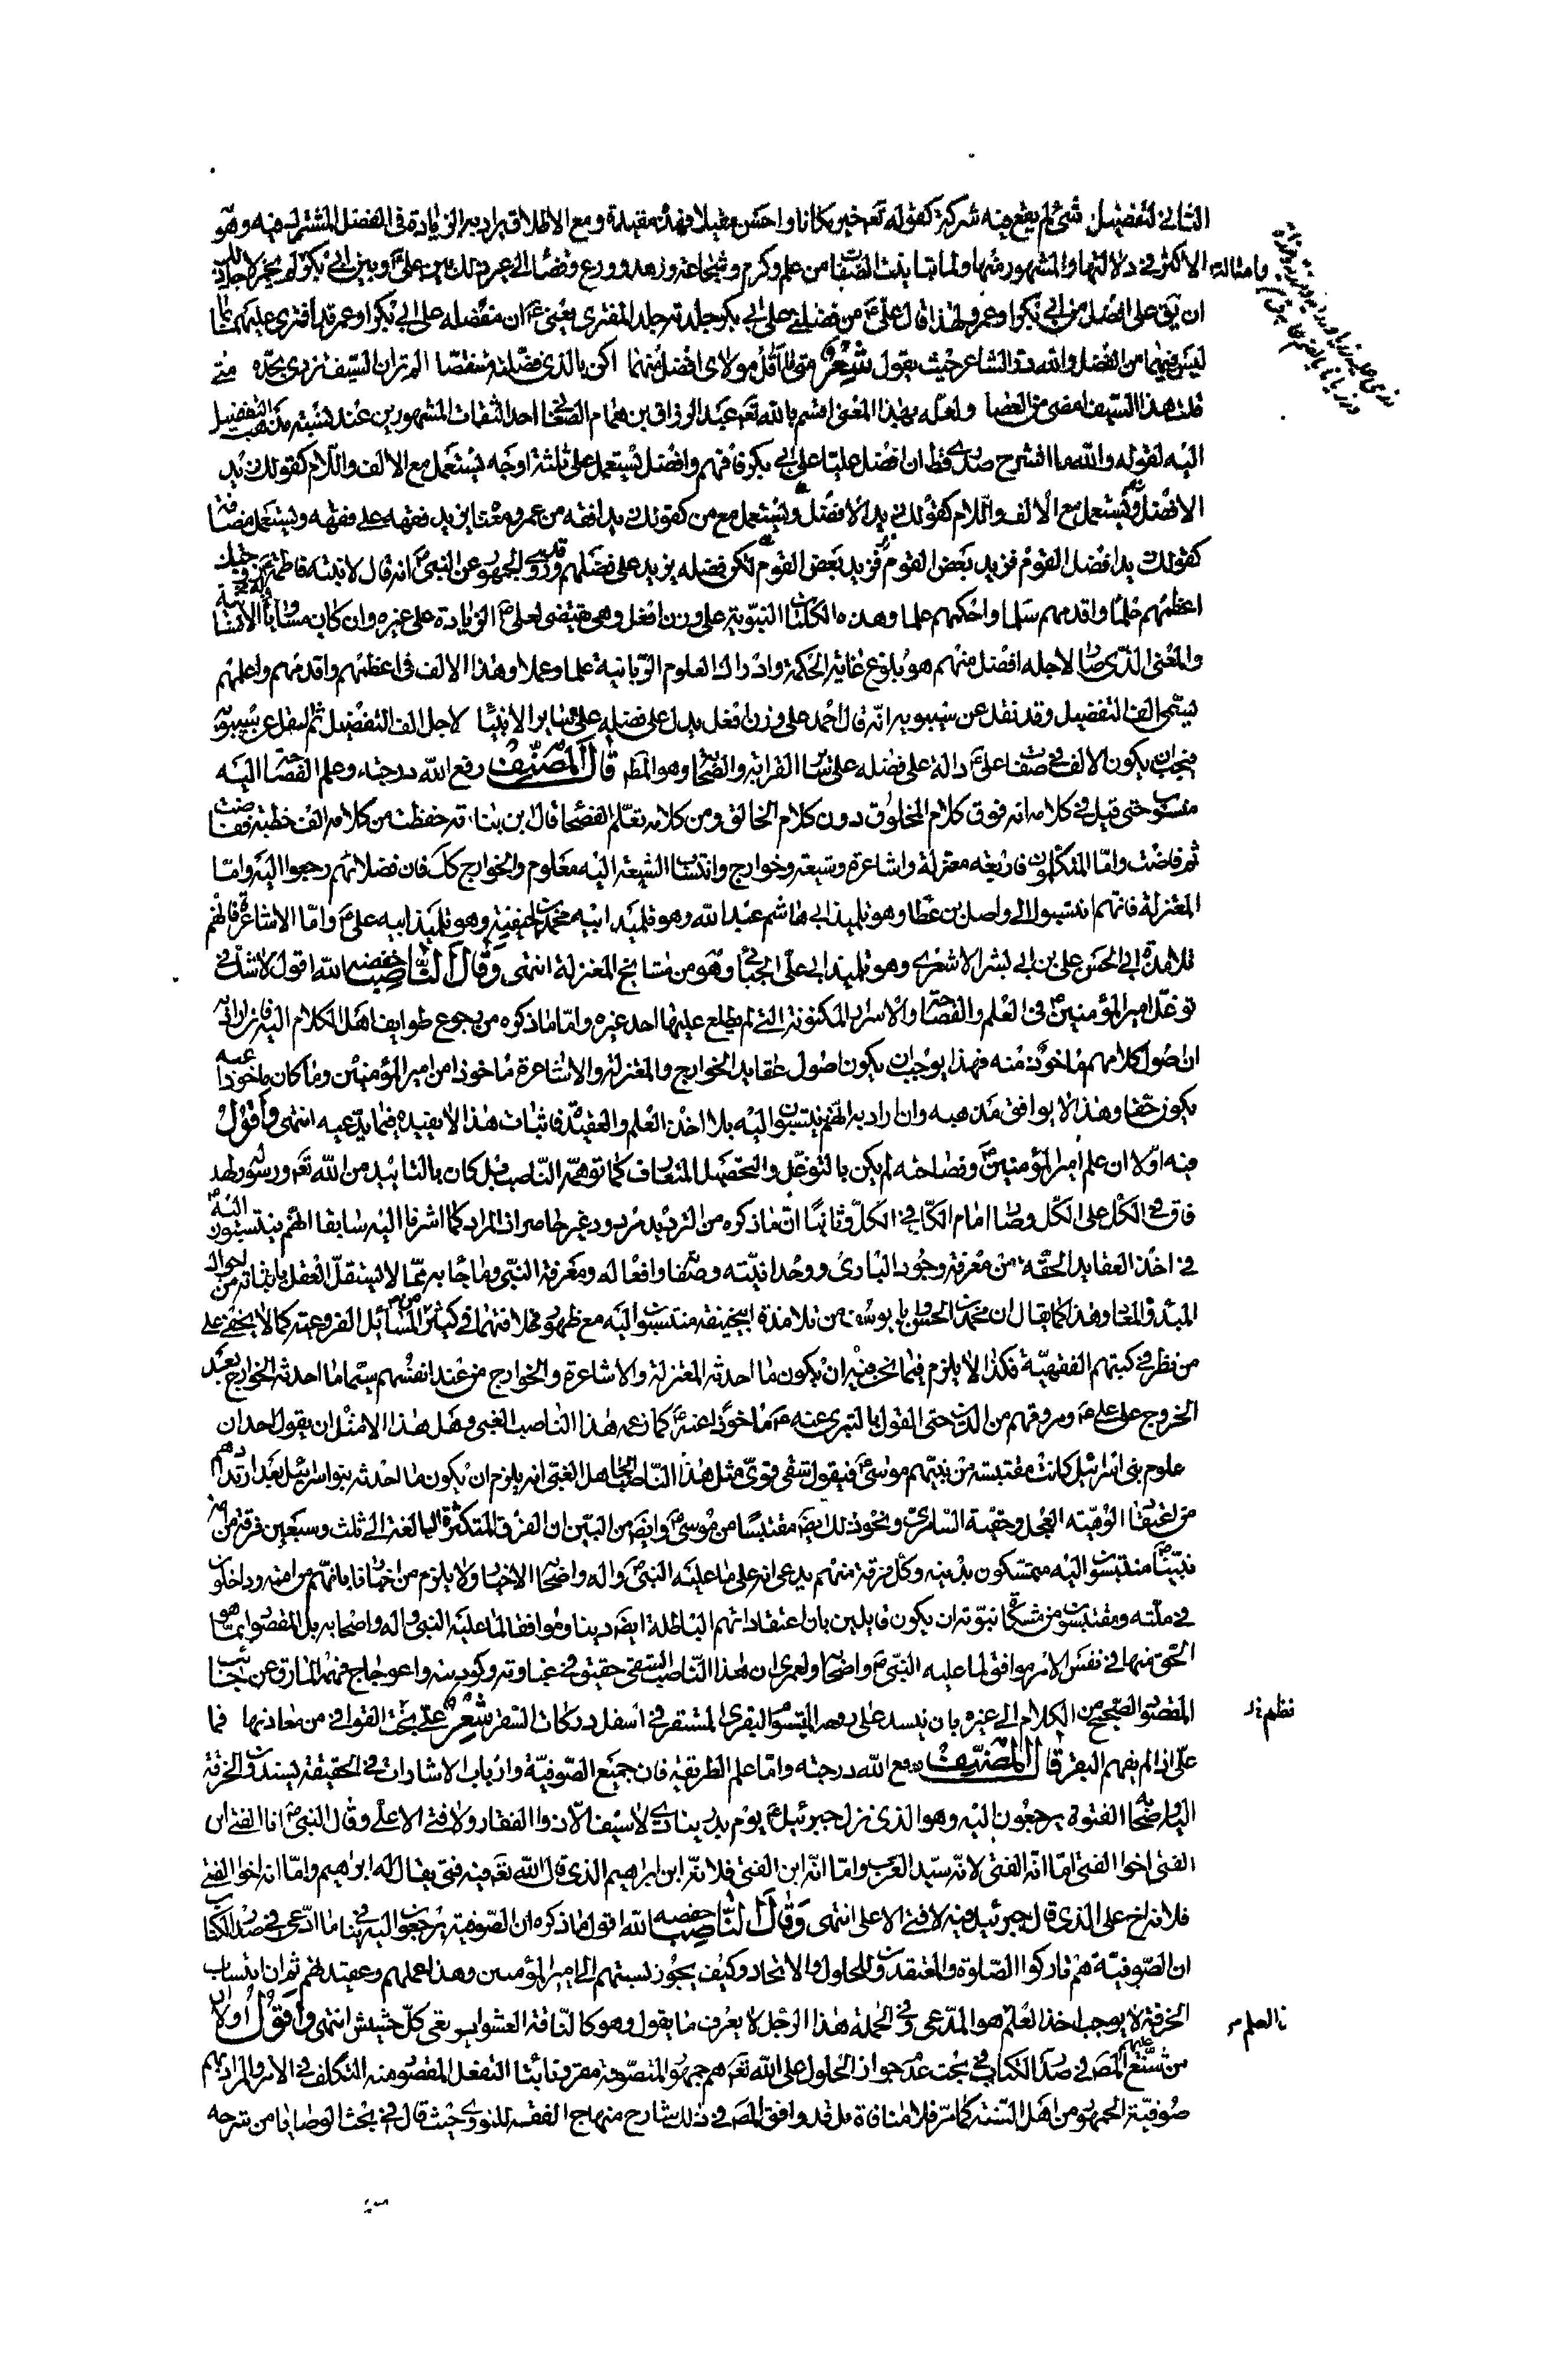 الثانى لتفضيل شئ لم يقع فيه شركة كقوله تع خير مكانا واحسن مقيلا فهذه مقيدة ومع الاطلاق يراد به الزيادة فى الفضل المشترك فيه وهو
الاكثر فى دلالتها والمشهور منها ولما تباينت الصفات من علم وكرم وشجاعة وزهد وورع وفضائل الى غير ذلك بين على ع وبين ابى بكر لم يجز لاجل ذلك
ان يق على افضل من ابى بكر او عمر ولهذا قال على ع من فضلنى على ابى بكر جلدته جلد المفترى يعنى ع ان مفضله على ابى بكر او عمر قد افترى عليهما بما
ليس فيهما من الفضل ولله در الشاعر حيث يقول شعر متى ما اقل مولاى افضل منهما اكن بالذى فضلته متنقصا الم تر ان السيف يزرى بحده متى
قلت هذا السيف امضى من العصا ولعله بهذا المعنى اقسم بالله تع عبد الرزاق بن همام الصنعانى احد الثقات المشهورين عند نسبته مذهب التفضيل
اليه لقوله والله ما انشرح صدرى قط ان افضل عليا على ابى بكر فافهم وافضل تستعمل على ثلثة اوجه تستعمل مع الالف واللام كقولك زيد
الافضل وتستعمل مع الالف واللام كقولك زيد الافضل وتستعمل مع من كقولك زيد افقه من عمرو معناه زيد فقهه على فقهه وتستعمل مضافة
كقولك زيد افضل القوم فزيد بعض القوم فزيد بعض القوم لكن فضله يزيد على فضلهم وقد روى الجمهور عن النبى ص انه قال لابنته فاطمة زوجتك
اعظمهم حلما واقدمهم سلما واحكمهم علما وهذه الكلمات النبوية على وزن افعل وهى تقتضى لعلى ع الزيادة على غيره وان كان مشابها الانسانية
والمعنى الذى صار لاجله افضل منهم هو بلوغ غاية الحكمة وادراك العلوم الربانية علما وعملا وهذا الالف فى اعظمهم واقدمهم واعلمهم
يسمى الف التفضيل وقد نقل عن سيبويه انه قال احمد على وزن افعل يدل على فضله على ساير الانبياء لاجل الف التفضيل ثم لينقل عن سيبويه
فيجب ان يكون الالف فى صفات على ع دالة على فضله على ساير القرابة والصحابة وهو المط قال المصنف رفع الله درجته وعلم الفصاحة اليه
منسوب حتى قيل فى كلامه انه فوق كلام المخلوق دون كلام الخالق ومن كلامه تعلم الفصحا قال ابن نباته حفظت من كلامه الف خطبة ففاضت
ثم فاضت واما المتكلمون فاربعة معتزلة واشاعرة وشيعة وخوارج وانتساب الشيعة اليه معلوم والخوارج كك فان فضلائهم رجعوا اليه واما
المعتزلة فانهم انتسبوا الى واصل بن عطا وهو تلميذ ابى هاشم عبد الله وهو تلميذ ابيه محمد بن الحنفية وهو تلميذ ابيه على ع واما الاشاعرة فانهم
تلامذة ابى الحسن على بن ابى بشر الاشعرى وهو تلميذ ابى على الجبائى وهو من مشايخ المعتزلة انتهى وقال الناصب خفضه الله اقول لا شك فى
توغل امير المؤمنين ع فى العلم والفصاحة والاسرار المكنونة التى لم يطلع عليها احد غيره واما ما ذكره من رجوع طوايف اهل الكلام اليه فان اراد به
ان اصول كلامهم ماخوذة منه فهذا يوجب ان يكون اصول عقايد الخوارج والمعتزلة والاشاعرة ماخوذا من امير المؤمنين وما كان ماخوذا عنه
يكون حقا وهذا لا يوافق مذهبه وان اراد به انهم ينتسبون اليه بلا اخذ العلم والعقيدة فاثبات هذا لا يفيده فيما يدعيه انتهى واقول
فيه اولا ان علم امير المؤمنين ع وفصاحته لم يكن بالتوغل والتحصيل المتعارف كما توهمه الناصب بل كان بالتاييد من الله تع ورسوله قد
فاق فى الكل على الكل وصار امام الكل فى الكل وثانيا ان ما ذكره من الترديد مردود غير حاصر اذ المراد كما اشرنا اليه سابقا انهم ينتسبون اليه
فى اخذ العقايد الحقة من معرفة وجود البارى ووحدانيته وصفاته وافعاله ومعرفة النبى وما جاء به مما لا يستقل العقل باثباته من احوال
المبدء والمعاد وهذا كما يقال ان محمد بن الحسن وابا يوسف من تلامذة ابيحنيفة منتسبون اليه مع ظهور مخالفتهما فى كثير من المسائل الفروعية كما لا يخفى على
من نظر فى كتبهم الفقهية فكذا لا يلزم فيما نحن فيه ان يكون ما احدثه المعتزلة والاشاعرة والخوارج من عند انفسهم سيما ما احدثه الخوارج بعد
الخروج على على ع ومروقهم من الدين حتى القول بالتبرى عنه ع ماخوذا عنه ع كما زعمه هذا الناصب الغبى وهل هذا الا مثل ان يقول احد ان
علوم بنى اسرائيل كانت مقتبسة من نبيهم موسى ع فيقول شقى غوى مثل هذا الناصب الجاهل الغبى انه يلزم ان يكون ما احدثه بنو اسرائيل بعد ارتدادهم
من اعتقاد الوهية العجل وحقية السامرى ونحو ذلك ايضا مقتبسا من موسى ع وايضا من البين ان الفرق المتكثرة البالغة الى ثلث وسبعين فرقة من امة
نبينا ص منتسبون اليه متمسكون بدينه وكل فرقة منهم يدعى انه على ما عليه النبى ص واله واصحابه الاخيار ولا يلزم من اخبارنا بانهم من امته وداخلون
فى ملته ومقتبسون من مشكاة نبوته ان يكون قايلين بان اعتقاداتهم الباطلة ايضا دينا وموافقا لما عليه النبى واله واصحابه بل المقصود انما هو
الحق منها فى نفس الامر موافق لما عليه النبى ص واصحابه ولعمرى ان هذا الناصب الشقى حقيق فى غباوته وركود ذهنه واعوجاج فهمه المارق عن جناب
المقصود الصحيح من الكلام الى غيره بان ينسد على روحه المتيسر البقرى المستقر فى اسفل دركات السقر شعر على نحت القوافى من معادنها فما
على اذا لم يفهم البقر قال المصنف رفع الله درجته واما علم الطريقة فان جميع الصوفية وارباب الاشارات فى الحقيقة يسندون الخرقة
اليه واصحاب الفتوة يرجعون اليه وهو الذى نزل جبرئيل ع يوم بدر ينادى لا سيف الا ذو الفقار ولا فتى الا على وقال النبى ص انا الفتى ابن
الفتى اخو الفتى اما انه الفتى لانه سيد العرب واما انه ابن الفتى فلانه ابن ابراهيم الذى قال الله تع فيه فتى يقال له ابراهيم واما انه اخو الفتى
فلانه اخ على الذى قال جبرئيل فيه لا فتى الا على انتهى وقال الناصب خفضه الله اقول ما ذكره ان الصوفية يرجعون اليه فى هنا ما ادعى فى صدر الكتاب
ان الصوفية هم تاركوا الصلوة والمعتقدون للحلول والاتحاد وكيف يجوز نسبتهم الى امير المؤمنين وهذا عملهم وعقيدتهم ثم ان انتساب
الخرقة لا يوجب اخذ العلم هو المدعى وفى الجملة هذا الرجل لا يعرف ما يقول وهو كالناقة العشواء يرتعى كل حشيش انتهى واقول اولا ان
من شنع عليهم المص فى صدر الكتاب فى بحث عدم جواز الحلول على الله تع هم جمهور المتصوفة مقرونا بتاء التفعل المقصود منه التكلف فى الامر والمراد بهم
صوفية الجمهور من اهل السنة كما مر فلا منافاة بل قد وافق المص فى ذلك شارح منهاج الفقه للنووى حيث قال فى بحث الوصايا من شرحه
وامثاله
نظم نه
نا العلم